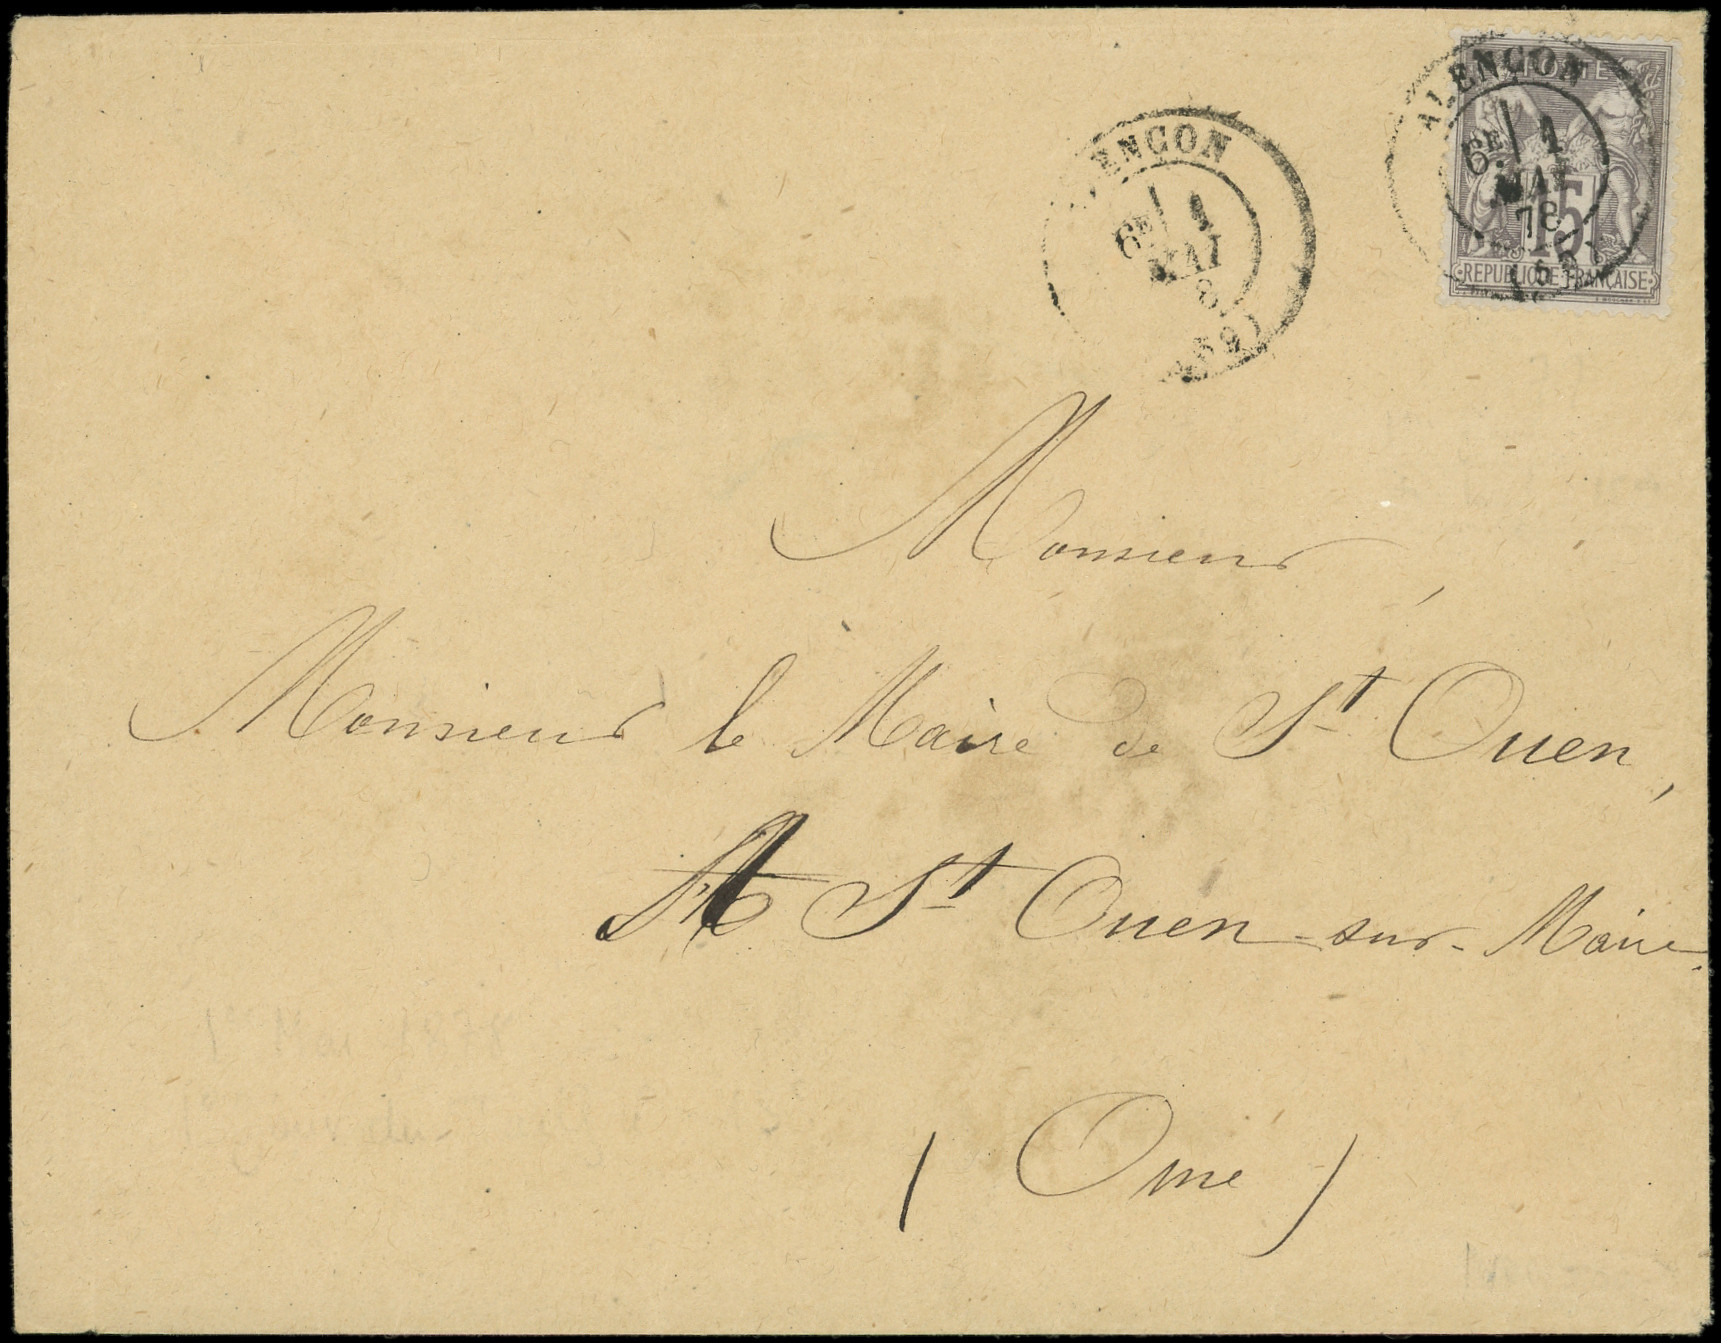 ALENCON
6E 1
MAI
78
POSTE
15
REPUBLIQUE FRANÇAISE
ENCON
6E 1
MAI
8
(59)
Monsieur,
Monsieur le Maire de St Ouen,
A St Ouen-sur-Maire.
(Orne)